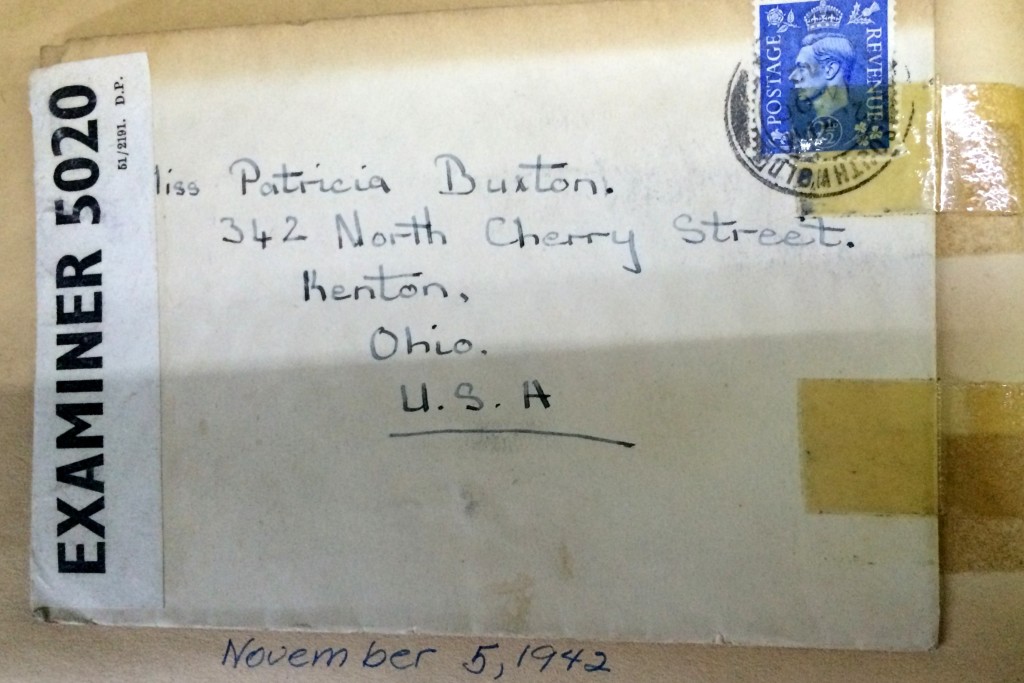 EXAMINER 5020
51/2191. D.P.
POSTAGE REVENUE
Miss Patricia Buxton.
342 North Cherry Street.
Kenton,
Ohio.
U.S.A
November 5, 1942